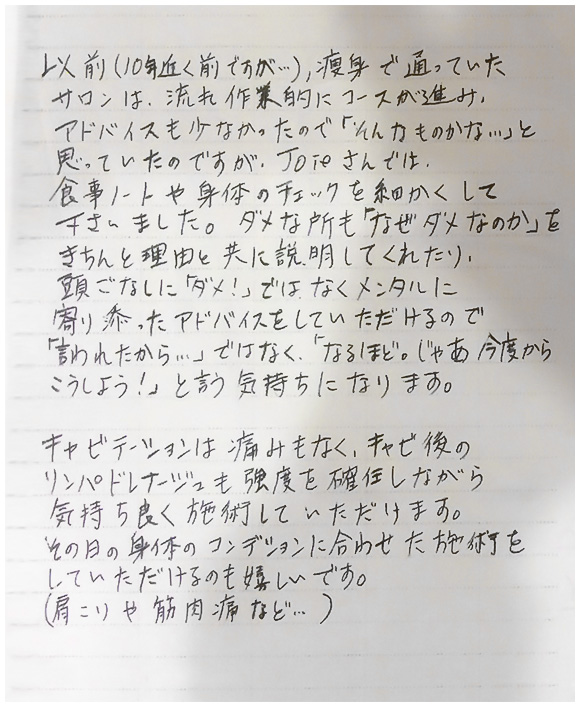 以前(10年近く前ですが…)、痩身で通っていた
サロンは、流れ作業的にコースが進み、
アドバイスも少なかったので「そんなものかな…」と
思っていたのですが、Joieさんでは、
食事ノートや身体のチェックを細かくして
下さいました。ダメな所も「なぜダメなのか」を
きちんと理由と共に説明してくれたり、
頭ごなしに「ダメ!」ではなくメンタルに
寄り添ったアドバイスをしていただけるので
「言われたから…」ではなく、「なるほど。じゃあ今度から
こうしよう!」と言う気持ちになります。
キャビテーションは痛みもなく、キャビ後の
リンパドレナージュも強度を確任しながら
気持ち良く施術していただけます。
その日の身体のコンデションに合わせた施術を
していただけるのも嬉しいです。
(肩こりや筋肉痛など…)